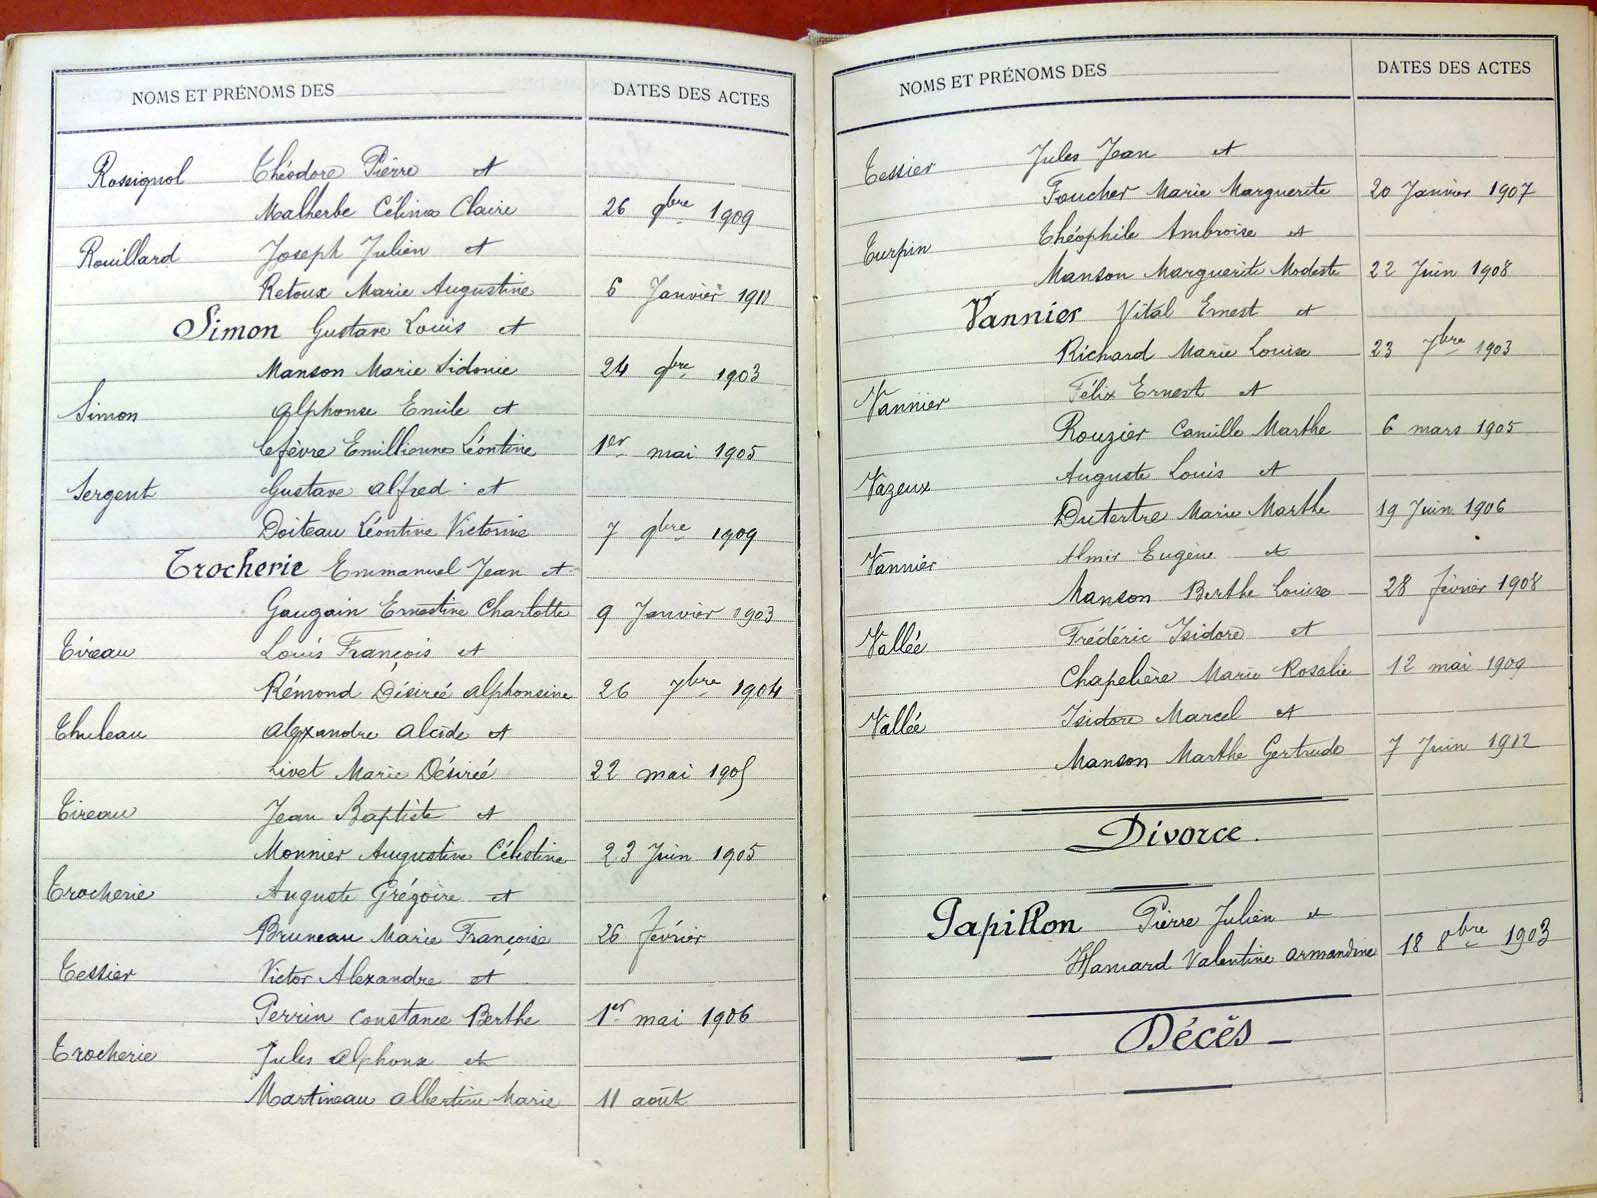 NOMS ET PRÉNOMS DES DATES DES ACTES
Rossignol Théodore Pierre et
Malherbe Célina Claire 26 9bre 1909
Rouillard Joseph Julien et
Retoux Marie Augustine 6 Janvier 1911
Simon Gustave Louis et
Manson Marie Sidonie 24 9bre 1903
Simon Alphonse Emile et
Lefèvre Emillienne Léontine 1er mai 1905
Sergent Gustave Alfred et
Doiteau Léontine Victorine 7 9bre 1909
Trocherie Emmanuel Jean et
Gaugain Ernestine Charlotte 9 Janvier 1903
Tireau Louis François et
Rémond Désirée Alphonsine 26 7bre 1904
Thuleau Alexandre Alcide et
Livet Marie Désirée 22 mai 1905
Tireau Jean Baptiste et
Monnier Augustine Célestine 23 Juin 1905
Trocherie Auguste Grégoire et
Bruneau Marie Françoise 26 février
Tessier Victor Alexandre et
Perrin Constance Berthe 1er mai 1906
Trocherie Jules Alphonse et
Martineau Albertine Marie 11 août
NOMS ET PRÉNOMS DES DATES DES ACTES
Tessier Jules Jean et
Foucher Marie Marguerite 20 Janvier 1907
Turpin Théophile Ambroise et
Manson Marguerite Modeste 22 Juin 1908
Vannier Vital Ernest et
Richard Marie Louise 23 7bre 1903
Vannier Félix Ernest et
Rouzier Camille Marthe 6 mars 1905
Vazeux Auguste Louis et
Dutertre Marie Marthe 19 Juin 1906
Vannier Almir Eugène et
Manson Berthe Louise 28 février 1908
Vallée Frédéric Isidore et
Chapelière Marie Rosalie 12 mai 1909
Vallée Isidore Marcel et
Manson Marthe Gertrude 7 Juin 1912
Divorce.
Papillon Pierre Julien et
Hamard Valentine Armandine 18 8bre 1903
Décès